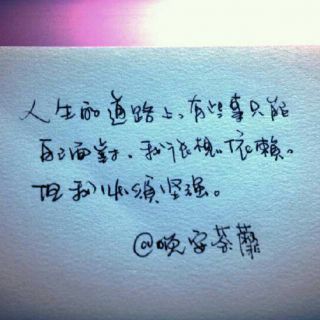 人生的道路上、有些事只能
自己面對、我很想依賴。
但我必須坚强。
@晚安荼蘼